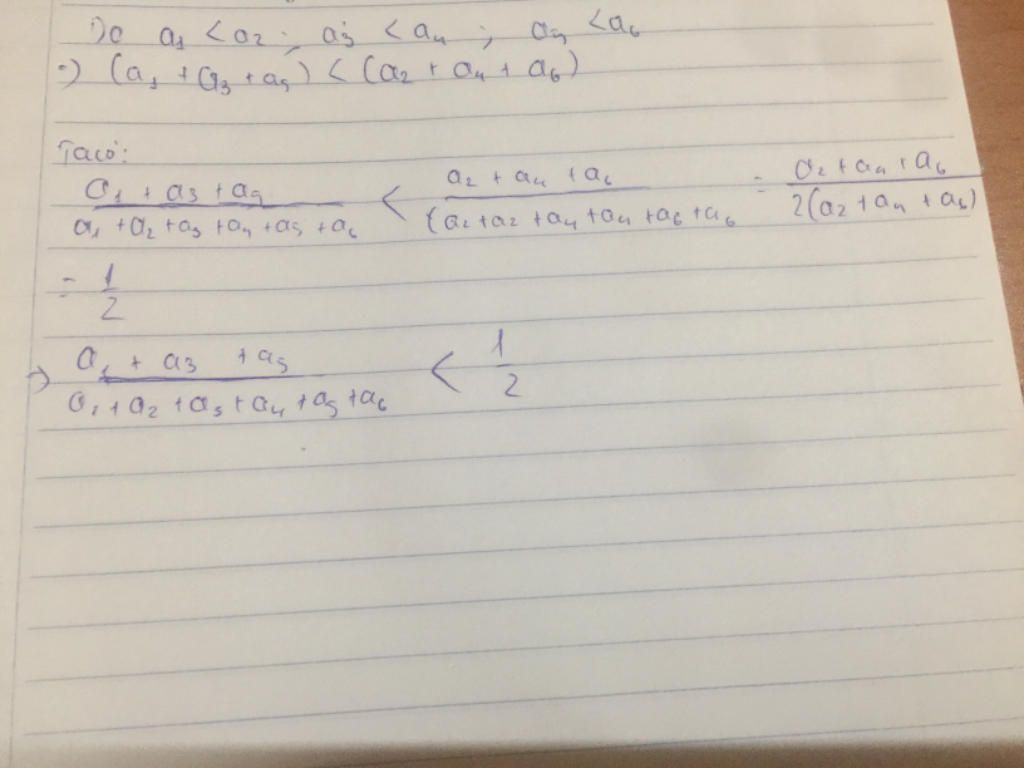 Do a1 < a2 ; a3 < a4 ; a5 < a6
=) (a1 + a3 + a5) < (a2 + a4 + a6)
Ta có:
a1 + a3 + a5 / a1 + a2 + a3 + a4 + a5 + a6 < a2 + a4 + a6 / (a2 + a2 + a4 + a4 + a6 + a6 = a2 + a4 + a6 / 2(a2 + a4 + a6)
= 1/2
→ a1 + a3 + a5 / a1 + a2 + a3 + a4 + a5 + a6 < 1/2